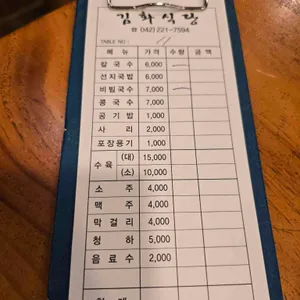 김화식당
☎ 042) 221-7594
TABLE NO : 11
메뉴 가격 수량 금액
칼국수 6,000 一
선지국밥 6,000
비빔국수 7,000 一
콩국수 7,000
공기밥 1,000
사리 2,000
포장용기 1,000
수육 (대) 15,000
(소) 10,000
소주 4,000
맥주 4,000
막걸리 4,000
청하 5,000
음료수 2,000